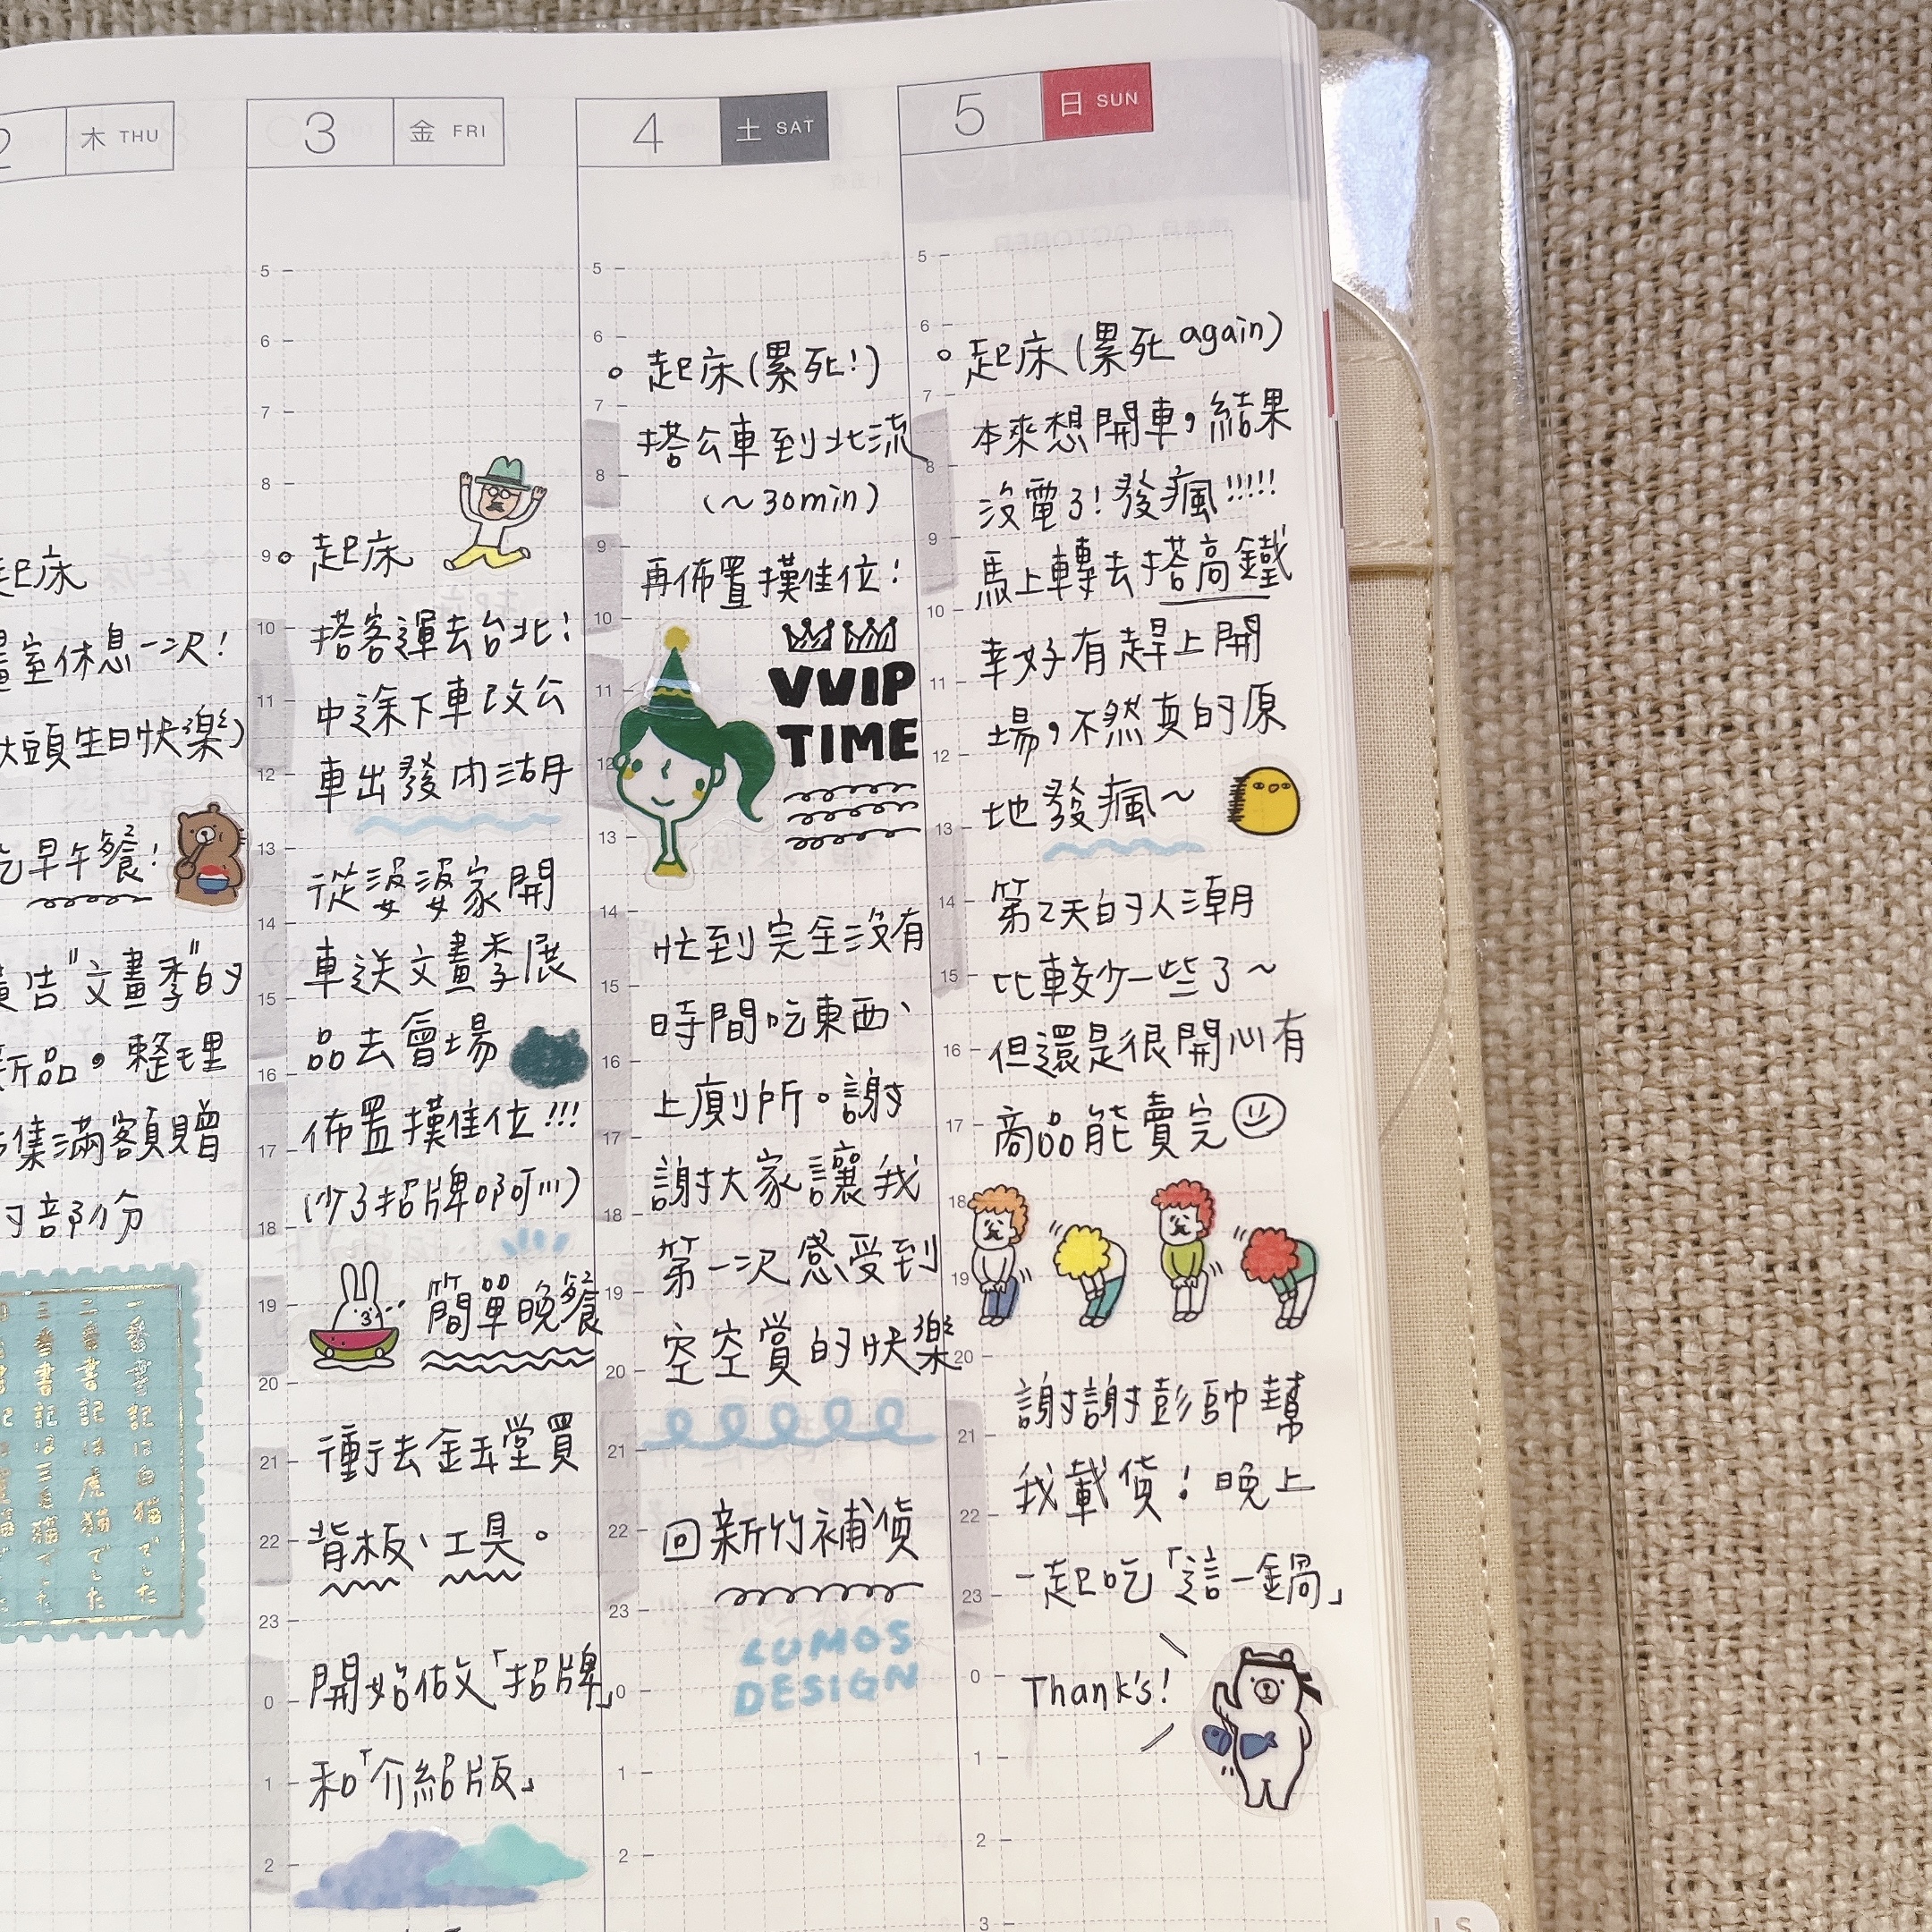 木 THU
起床
畫室休息一次!
頭生日快樂)
吃早午餐!
"文畫季"的
新品。整理
集滿額贈
的部份
一番書記は白猫でした
二番書記は虎猫でした
三番書記は三毛猫でした
3 金 FRI
起床
搭客運去台北!
中途下車改公
車出發內湖
從婆婆家開
車送文畫季展
品去會場
佈置攤位!!!
(少了招牌啊!!!)
簡單晚餐
衝去金玉堂買
背板、工具。
開始做「招牌」
和「介紹版」
4 土 SAT
起床(累死!)
搭公車到北流
(~30min)
再佈置攤位!
VVIP
TIME
忙到完全沒有
時間吃東西、
上廁所。謝
謝大家讓我
第一次感受到
空空賞的快樂
回新竹補貨
LUMOS
DESIGN
5 日 SUN
起床(累死again)
本來想開車,結果
沒電了!發瘋!!!!!
馬上轉去搭高鐵
幸好有趕上開
場,不然真的原
地發瘋~
第2天的人潮
比較少一些了~
但還是很開心有
商品能賣完
謝謝彭帥幫
我載貨!晚上
一起吃「這一鍋」
Thank's!